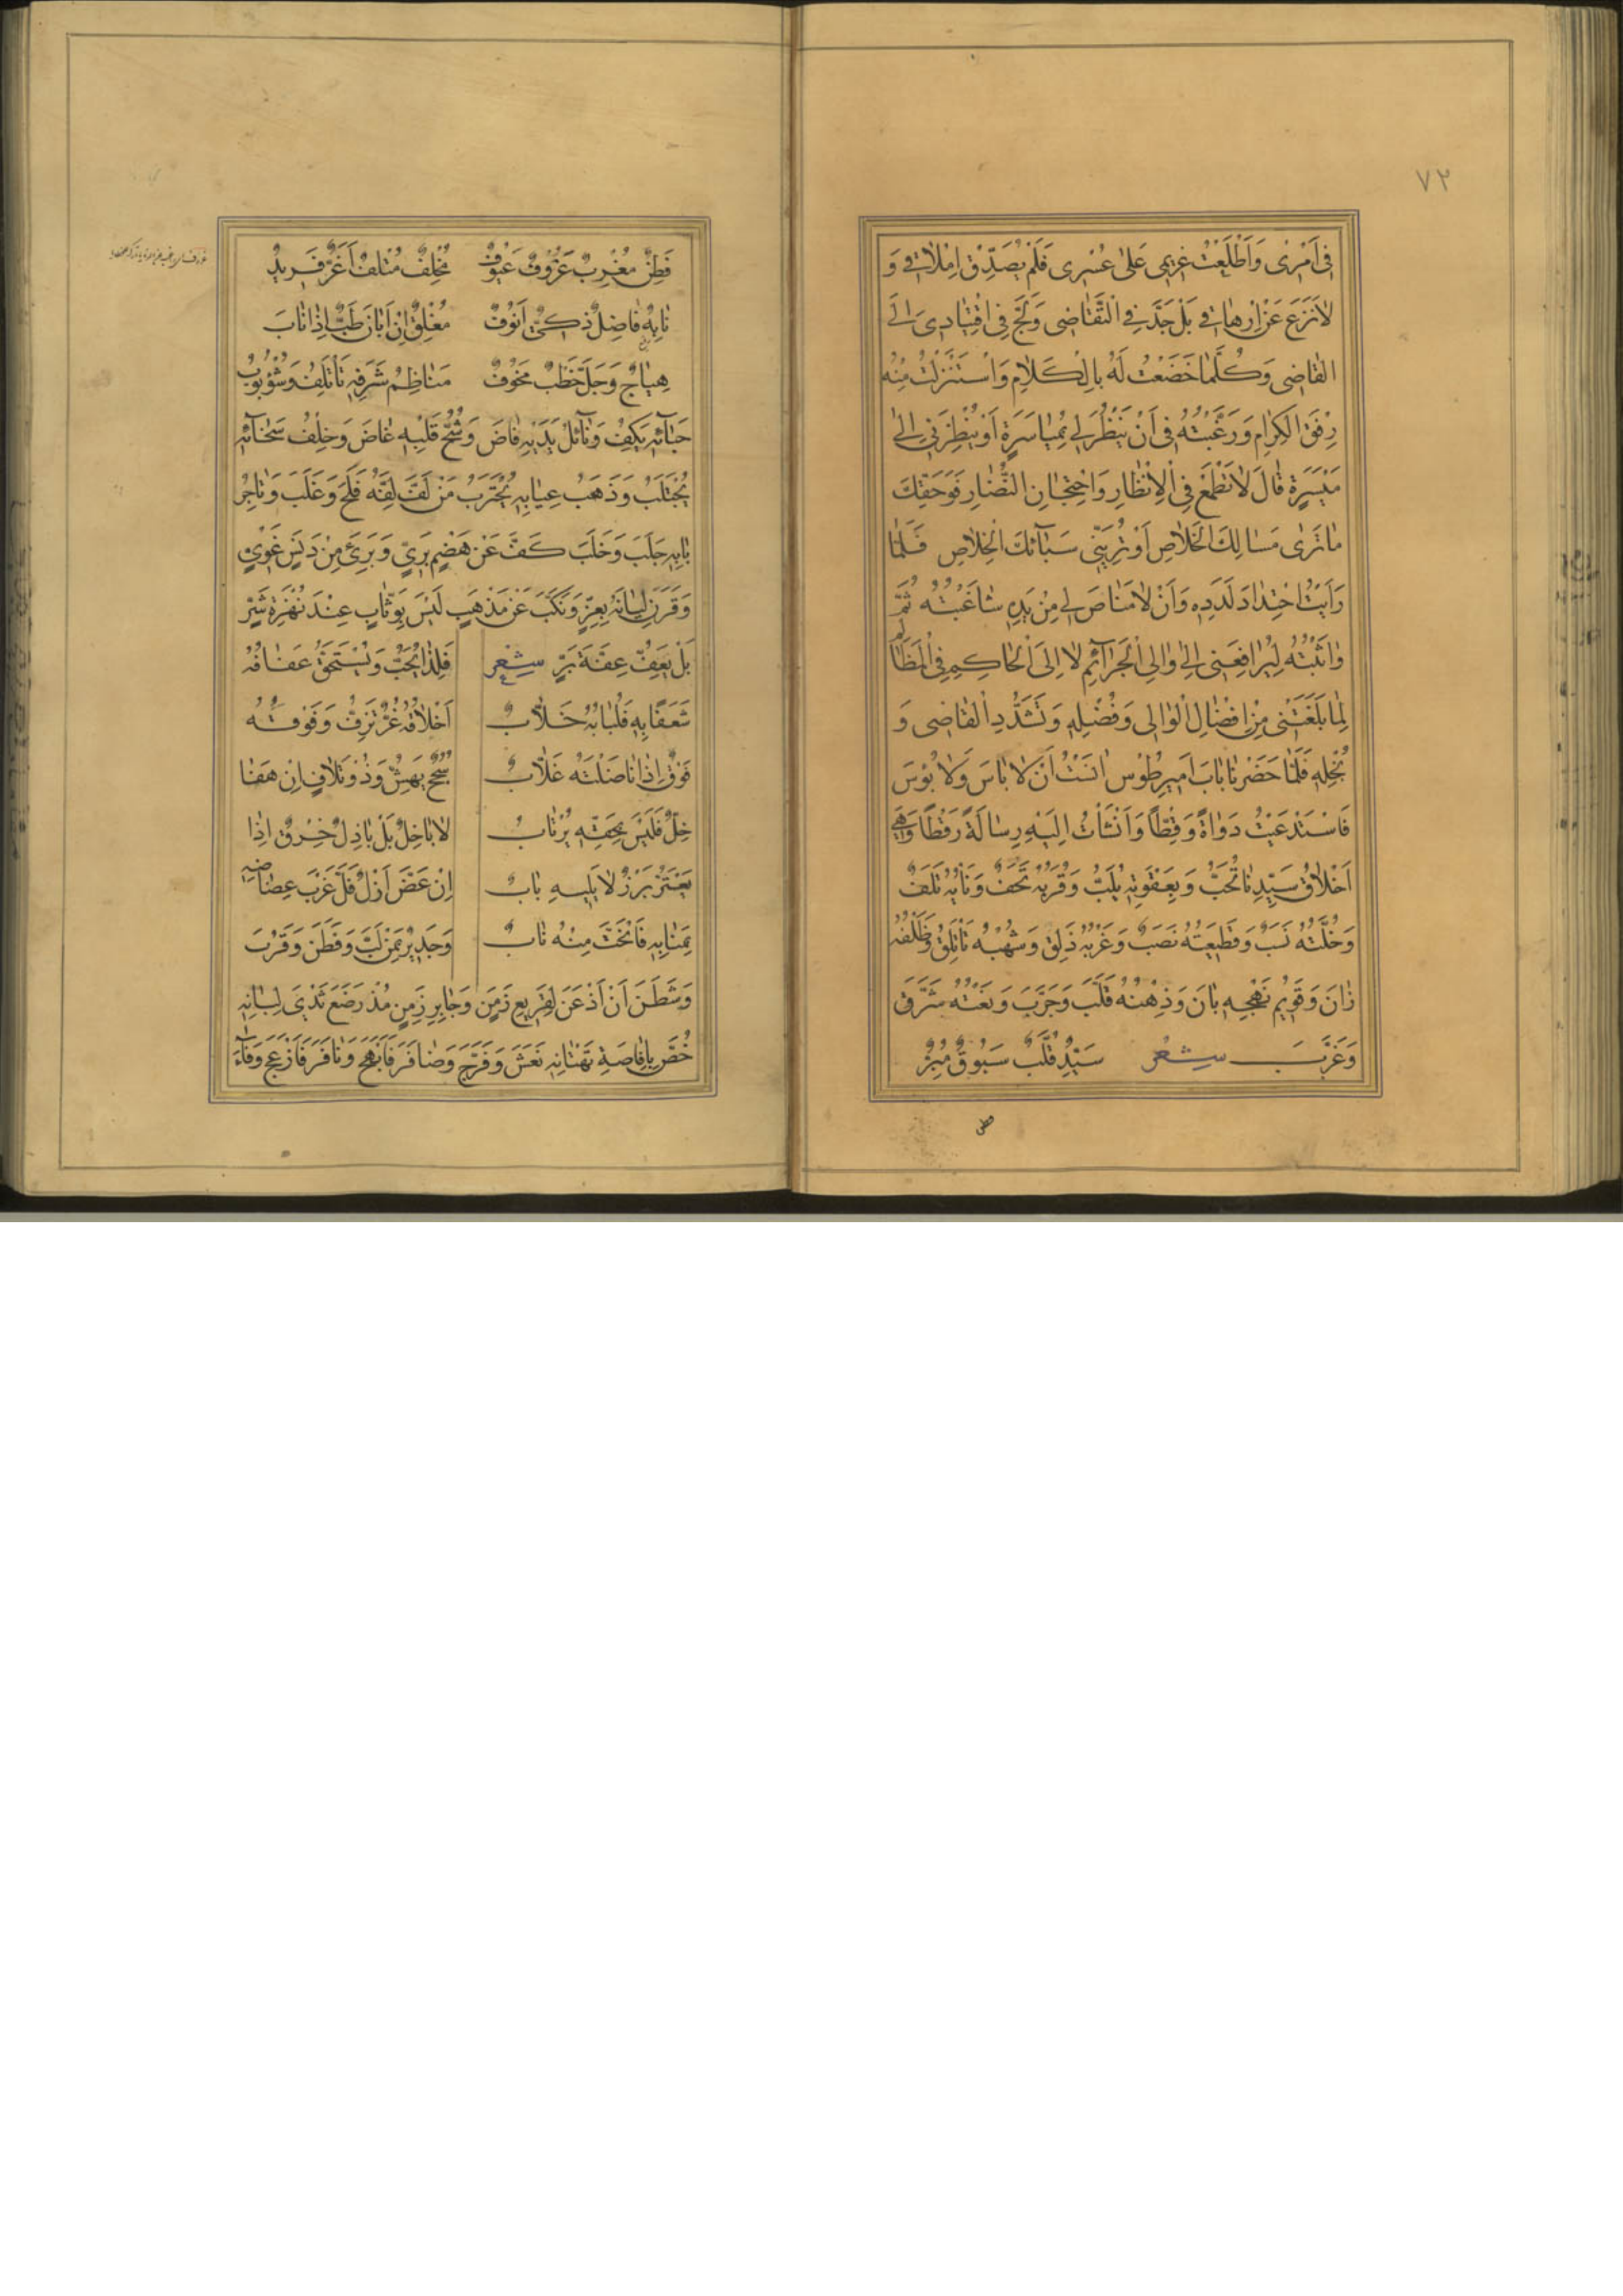 ٧٢
فِى اَمْرِى وَاَطْلَعْتُ غَرِيمِى عَلىٰ عُسْرِى فَلَمْ يُصَدِّقْ اِمْلاٰقِى وَ
لاٰ نَزَعَ عَنْ اِرْهاٰقِى بَلْ جَدَّ فِى التَّقٰاضِى وَلَجَّ فِى اقْتِيٰادِى اِلَى
القٰاضِى وَكُلَّمٰا خَضَعْتُ لَهُ بِالْكَلاٰمِ وَاسْتَنْزَلْتُ مِنْهُ
رِفْقَ الْكِرٰامِ وَرَغَّبْتُهُ فِى اَنْ يَنْظُرَ لِى بِمُيٰاسَرَةٍ اَوْ يُنْظِرَنِى اِلىٰ
مَيْسَرَةٍ قٰالَ لاٰ تَطْمَعْ فِى الْاِنْظٰارِ وَاحْتِجٰانِ النُّضٰارِ فَوَحَقِّكَ
مٰا تَرىٰ مَسٰالِكَ الْخَلاٰصِ اَوْ تُرِيَنِى سَبٰآئِكَ الْخِلاٰصِ فَلَمّٰا
رَاَيْتُ احْتِدٰادَ لَدَدِهِ وَاَنْ لاٰ مَنٰاصَ لِى مِنْ يَدِهِ شٰاغَبْتُهُ ثُمَّ
وٰاثَبْتُهُ لِيُرٰافِعَنِى اِلىٰ وٰالِى الْجَرٰآئِمِ لاٰ اِلَى الْحٰاكِمِ فِى الْمَظٰالِمِ
لِمٰا بَلَغَنِى مِنْ اِفْضٰالِ الْوٰالِى وَفَضْلِهِ وَتَشَدُّدِ الْقٰاضِى وَ
بُخْلِهِ فَلَمّٰا حَضَرْنٰا بٰابَ اَمِيرِ طُوْس اٰنَسْتُ اَنْ لاٰ بَاسَ وَلاٰ بُوْسَ
فَاسْتَدْعَيْتُ دَوٰاةً وَقِطًّا وَاَنْشَاْتُ اِلَيْهِ رِسٰالَةً رَقْطًا وَهِىَ
اَخْلاٰقُ سَيِّدِنٰا تُحَبُّ وَبِعَقْوَتِهِ يُلَبُّ وَقُرْبُهُ تُحَفٌ وَنَاْيُهُ تَلَفٌ
وَخُلَّتُهُ نَسَبٌ وَقَطِيعَتُهُ نَصَبٌ وَغَرْبُهُ ذَلِقٌ وَشُهْبُهُ تَاْتَلِقُ وَظَلْفُهُ
زٰانَ وَقَوِيْمُ نَهْجِهِ بٰانَ وَذِهْنُهُ قَلَّبَ وَجَرَّبَ وَنَعْتُهُ شَرَّقَ
وَغَرَّبَ شِعْر سَيِّدٌ قُلَّبٌ سَبُوقٌ مُبِرٌّ
فطن
فَطِنٌ مُغْرِبٌ عَزُوْفٌ عَيُوْفٌ مُخْلِفٌ مُتْلِفٌ اَغَرُّ فَرِيدٌ
نٰابِهٌ فٰاضِلٌ ذَكِىٌّ اَنُوْفٌ مُفْلِقٌ اِنْ اَبٰانَ طَبٌّ اِذٰا نٰابَ
هِيٰاجٌ وَجَلَّ خَطْبٌ مَخُوْفٌ مَنٰاظِمُ شَرَفِهِ تَاْتَلِفُ وَشُؤْبُوْبُ
حَبٰآئِهِ يَكِفُ وَنٰآئِلُ يَدَيْهِ فٰاضَ وَشُحُّ قَلْبِهِ غٰاضَ وَخِلْفُ سَخٰآئِهِ
يُحْتَلَبُ وَذَهَبُ عِيٰابِهِ يُحْتَرَبُ مَنْ لَفَّ لِفَّهُ فَلَجَ وَغَلَبَ وَتٰاجِرُ
بٰابِهِ جَلَبَ وَخَلَبَ كَفَّ عَنْ هَضْمِ بَرِىٍّ وَبَرِئَ مِنْ دَنَسِ غَوِىٍّ
وَقَرَنَ لِيٰانَهُ بِعِزٍّ وَنَكَّبَ عَنْ مَذْهَبِ كَزٍّ لَيْسَ بِوَثّٰابٍ عِنْدَ نُهْزَةِ شَرٍّ
بَلْ يَعِفُّ عِفَّةَ بَرٍّ شِعْر فَلِذٰا يُحَبُّ وَيُسْتَحَقُّ عَفٰافُهُ
شَعَفًا بِهِ فَلُبٰابُهُ خَلاّٰبٌ اَخْلاٰقُهُ غُرٌّ تَرِفُّ وَفُوْقُهُ
فُوْقٌ اِذٰا نٰاضَلْتَهُ غَلاّٰبٌ سُجُحٌ يَهِشُّ وَذُوْ تَلاٰفٍ اِنْ هَفٰا
خِلٌّ فَلَيْسَ بِحَقِّهِ يُرْتٰابُ لاٰ بٰاخِلٌ بَلْ بٰاذِلٌ خِرْقٌ اِذٰا
يُعْتَرُّ بَرْزٌ لاٰ يَلِيهِ بٰابٌ اِنْ عَضَّ اَزْلٌ فَلَّ غَرْبَ عِضٰاضِهِ
بِمَنٰابِهِ فَانْحَتَّ مِنْهُ نٰابٌ وَجَدِيْرٌ بِمَنْ لَبَّ وَفَطِنَ وَقَرُبَ
وَشَطَنَ اَنْ اَذْعَنَ لِقَرِيعِ زَمَنٍ وَجٰابِرِ زَمِنٍ مُذْ رَضَعَ ثَدْىَ لِبٰانِهِ
خُصَّ بِاِفٰاضَةِ تَهْتٰانِهِ نَعَشَ وَفَرَّجَ وَضٰافَرَ فَاَبْهَجَ وَنٰافَرَ فَاَزْعَجَ وَفٰآءَ